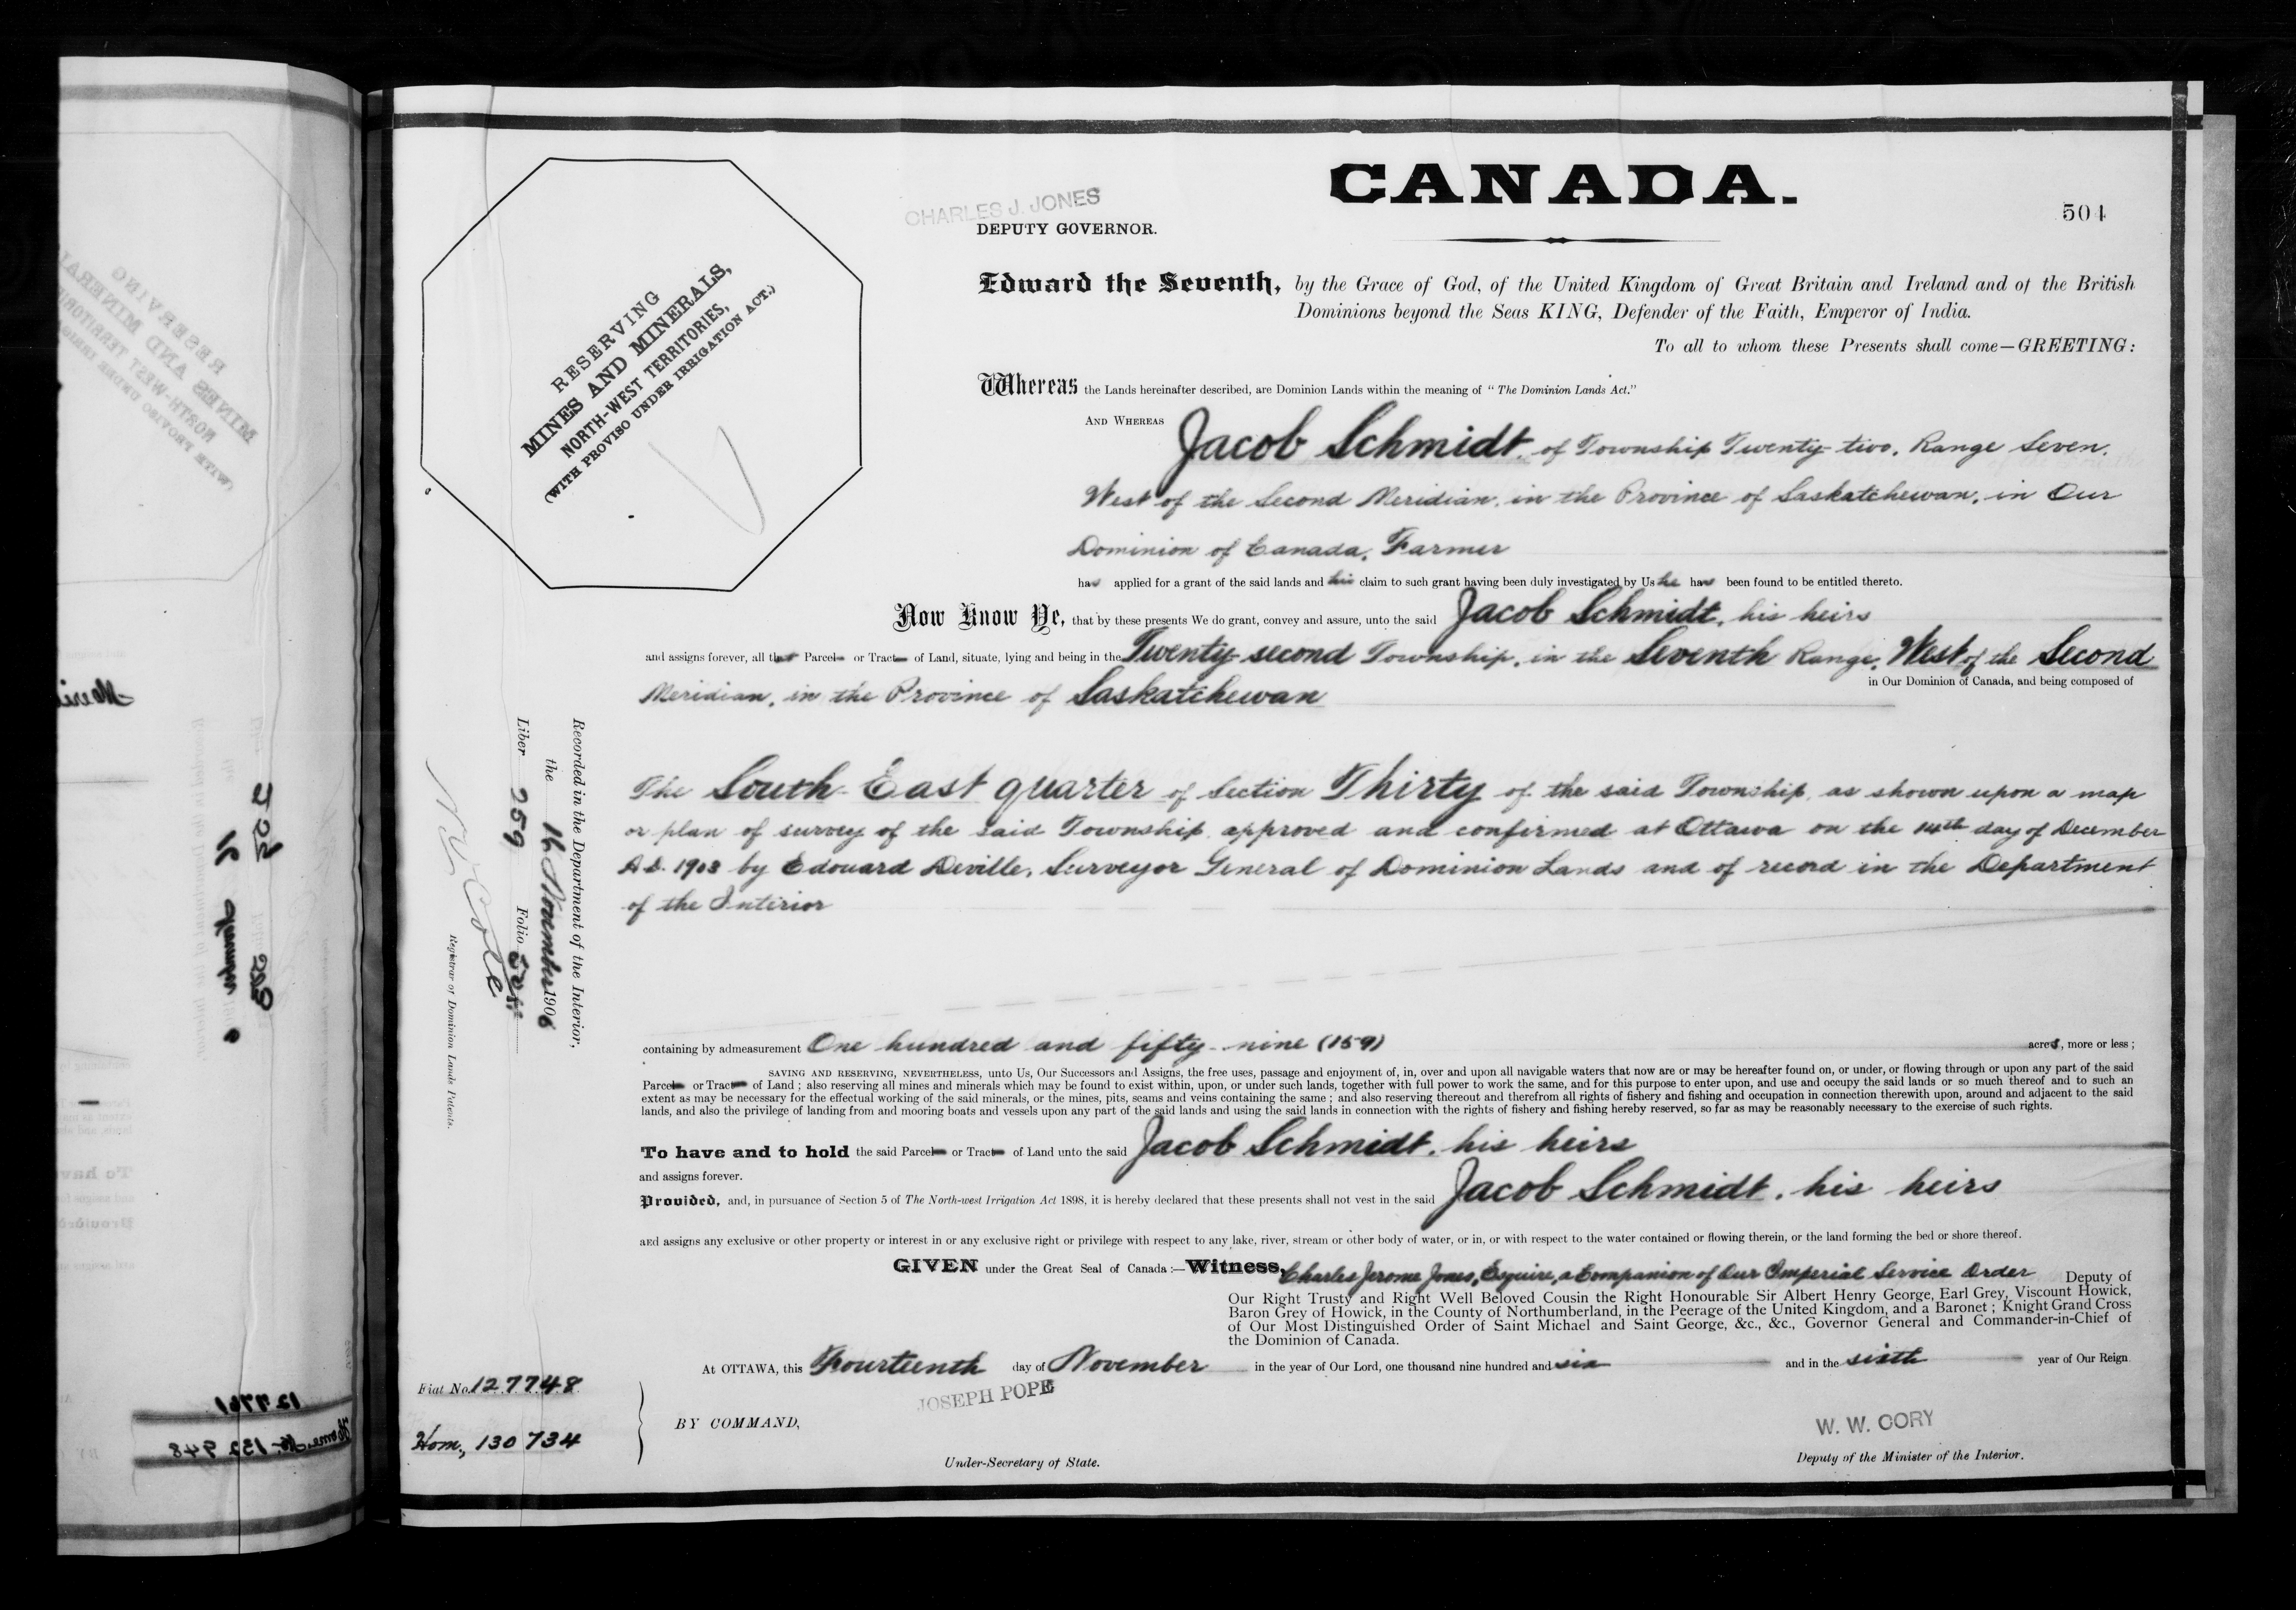 CANADA.
504
CHARLES J. JONES
DEPUTY GOVERNOR.
RESERVING
MINES AND MINERALS,
NORTH-WEST TERRITORIES,
(WITH PROVISO UNDER IRRIGATION ACT.)
Edward the Seventh, by the Grace of God, of the United Kingdom of Great Britain and Ireland and of the British
Dominions beyond the Seas KING, Defender of the Faith, Emperor of India.
To all to whom these Presents shall come—GREETING:
Whereas the Lands hereinafter described, are Dominion Lands within the meaning of "The Dominion Lands Act."
AND WHEREAS Jacob Schmidt, of Township Twenty-two, Range Seven,
West of the Second Meridian, in the Province of Saskatchewan, in Our
Dominion of Canada, Farmer
has applied for a grant of the said lands and his claim to such grant having been duly investigated by Us he has been found to be entitled thereto.
Now Know Ye, that by these presents We do grant, convey and assure, unto the said Jacob Schmidt, his heirs
and assigns forever, all that Parcel or Tract of Land, situate, lying and being in the Twenty-second Township, in the Seventh Range, West of the Second
Meridian, in the Province of Saskatchewan in Our Dominion of Canada, and being composed of
The South East quarter of Section Thirty of the said Township, as shown upon a map
or plan of survey of the said Township approved and confirmed at Ottawa on the 14th day of December
A.D. 1903 by Edouard Deville, Surveyor General of Dominion Lands and of record in the Department
of the Interior
Recorded in the Department of the Interior,
the 16 November 1906
Liber 259 Folio 504
Registrar of Dominion Lands Patents.
containing by admeasurement One hundred and fifty-nine (159) acres, more or less;
SAVING AND RESERVING, NEVERTHELESS, unto Us, Our Successors and Assigns, the free uses, passage and enjoyment of, in, over and upon all navigable waters that now are or may be hereafter found on, or under, or flowing through or upon any part of the said
Parcel or Tract of Land; also reserving all mines and minerals which may be found to exist within, upon, or under such lands, together with full power to work the same, and for this purpose to enter upon, and use and occupy the said lands or so much thereof and to such an
extent as may be necessary for the effectual working of the said minerals, or the mines, pits, seams and veins containing the same; and also reserving thereout and therefrom all rights of fishery and fishing and occupation in connection therewith upon, around and adjacent to the said
lands, and also the privilege of landing from and mooring boats and vessels upon any part of the said lands and using the said lands in connection with the rights of fishery and fishing hereby reserved, so far as may be reasonably necessary to the exercise of such rights.
To have and to hold the said Parcel or Tract of Land unto the said Jacob Schmidt, his heirs
and assigns forever.
Provided, and, in pursuance of Section 5 of The North-west Irrigation Act 1898, it is hereby declared that these presents shall not vest in the said Jacob Schmidt, his heirs
and assigns any exclusive or other property or interest in or any exclusive right or privilege with respect to any lake, river, stream or other body of water, or in, or with respect to the water contained or flowing therein, or the land forming the bed or shore thereof.
GIVEN under the Great Seal of Canada:—Witness, Charles Jerome Jones, Esquire, a Companion of Our Imperial Service Order Deputy of
Our Right Trusty and Right Well Beloved Cousin the Right Honourable Sir Albert Henry George, Earl Grey, Viscount Howick,
Baron Grey of Howick, in the County of Northumberland, in the Peerage of the United Kingdom, and a Baronet; Knight Grand Cross
of Our Most Distinguished Order of Saint Michael and Saint George, &c., &c., Governor General and Commander-in-Chief of
the Dominion of Canada.
At OTTAWA, this Fourteenth day of November in the year of Our Lord, one thousand nine hundred and six and in the sixth year of Our Reign
Fiat No. 127748
Hom., 130734
JOSEPH POPE
BY COMMAND,
Under-Secretary of State.
W. W. CORY
Deputy of the Minister of the Interior.